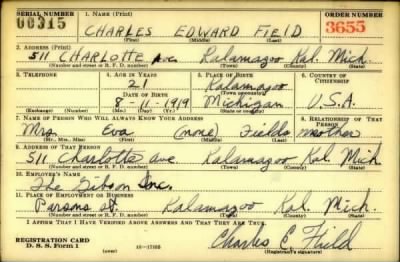 SERIAL NUMBER 1. NAME (Print) ORDER NUMBER
00315 CHARLES EDWARD FIELD 3655
(First) (Middle) (Last)
2. ADDRESS (Print)
511 CHARLOTTE Ave. Kalamazoo Kal. Mich.
(Number and street or R. F. D. number) (Town) (County) (State)
3. TELEPHONE 4. AGE IN YEARS 5. PLACE OF BIRTH 6. COUNTRY OF CITIZENSHIP
21 Kalamazoo
DATE OF BIRTH (Town or county)
8-11-1919 Michigan U.S.A.
(Exchange) (Number) (Mo.) (Day) (Yr.) (State or country)
7. NAME OF PERSON WHO WILL ALWAYS KNOW YOUR ADDRESS 8. RELATIONSHIP OF THAT PERSON
Mrs. Eva (none) Fields mother
(Mr., Mrs., Miss) (First) (Middle) (Last)
9. ADDRESS OF THAT PERSON
511 Charlotte ave. Kalamazoo Kal. Mich
(Number and street or R. F. D. number) (Town) (County) (State)
10. EMPLOYER'S NAME
The Gibson Inc.
11. PLACE OF EMPLOYMENT OR BUSINESS
Parsons st. Kalamazoo Kal. Mich.
(Number and street or R. F. D. number) (Town) (County) (State)
I AFFIRM THAT I HAVE VERIFIED ABOVE ANSWERS AND THAT THEY ARE TRUE.
REGISTRATION CARD
D. S. S. Form 1 (over) 16-17105 Charles E Field
(Registrant's signature)